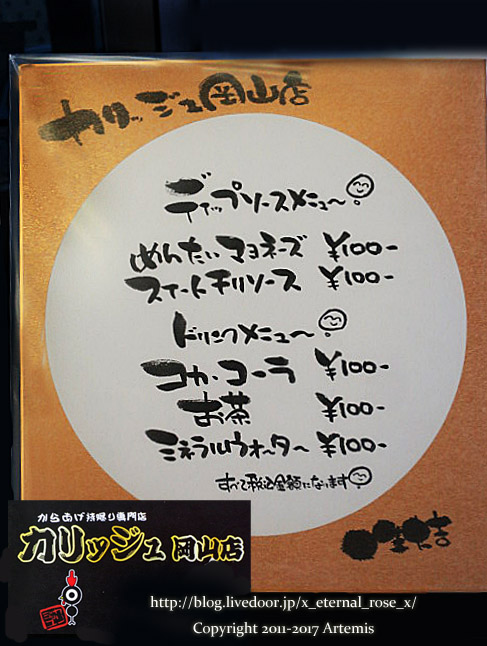 カリッジュ岡山店
ディップソースメニュ〜
めんたいマヨネーズ ¥100-
スイートチリソース ¥100-
ドリンクメニュ〜
コカ・コーラ ¥100-
お茶 ¥100-
ミネラルウォ〜タ〜 ¥100-
すべて税込金額になります
からあげ持帰り専門店
カリッジュ 岡山店
http://blog.livedoor.jp/x_eternal_rose_x/
Copyright 2011-2017 Artemis